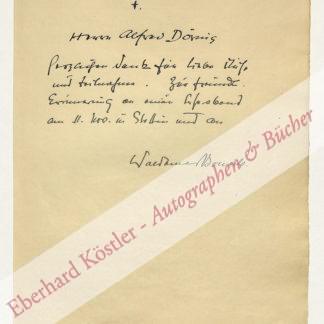 Herrn Alfred Döring
Herzlichen Dank für liebe
und Teilnahme. Zur freundl.
Erinnerung an meinen Leseabend
am 11. Nov. in Stettin und an
Waldemar Bonsels
Eberhard Köstler - Autographen & Bücher